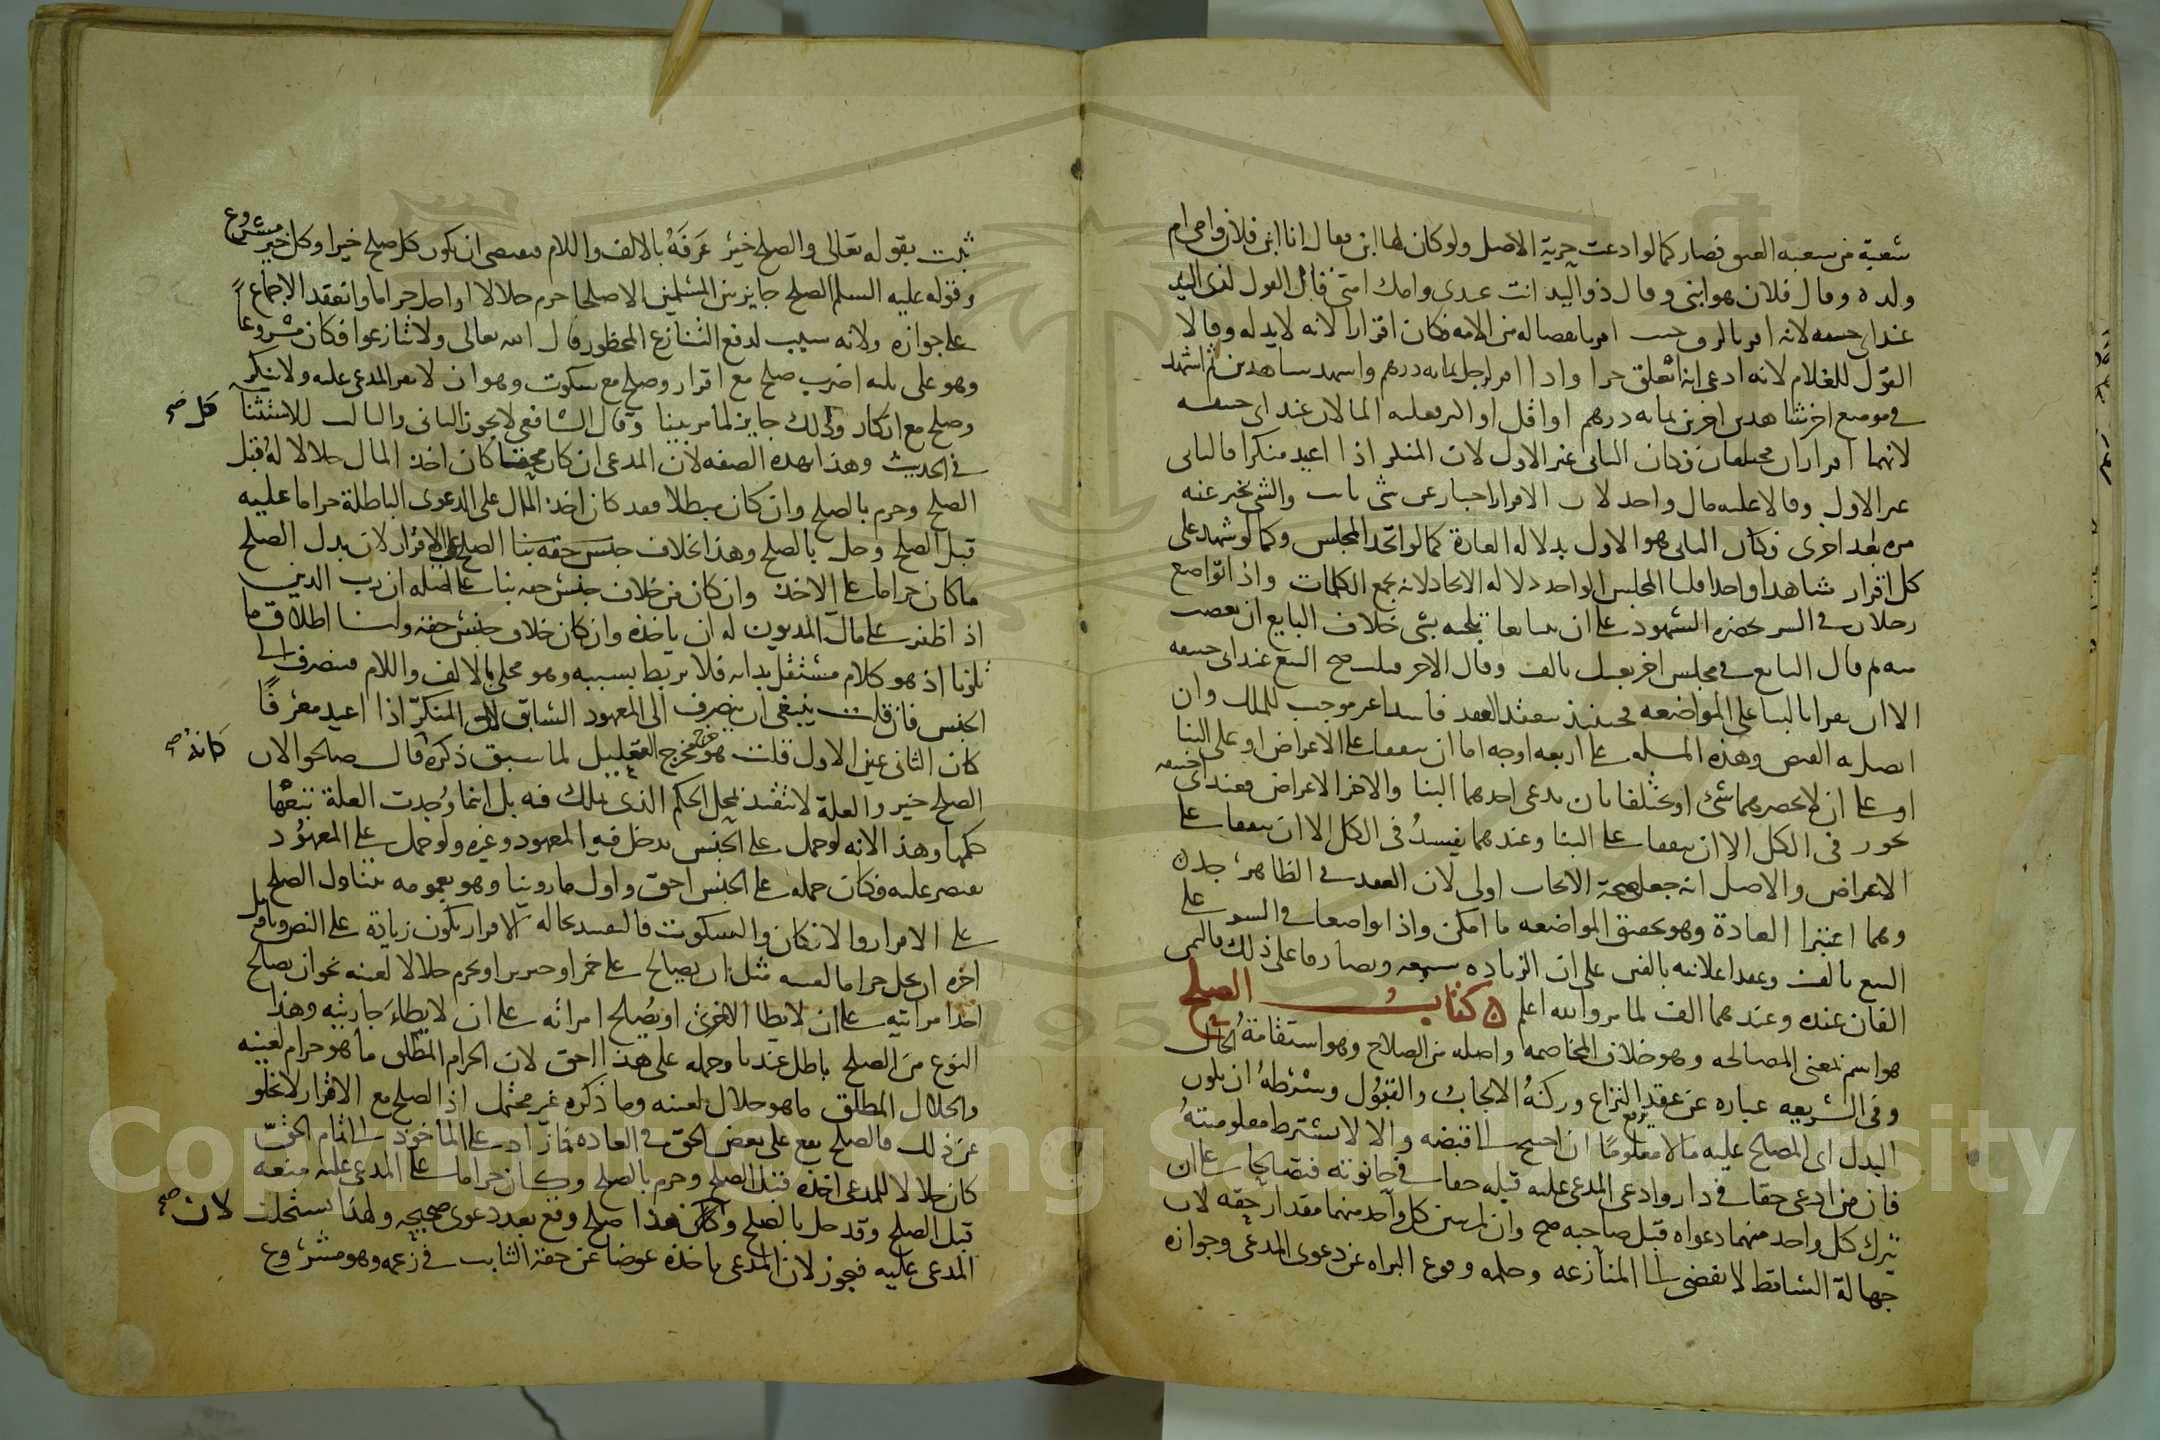 شعبة من شعبه العتق فصار كما لو ادعت حرية الاصل ولو كان لها ابن فقال انا ابن فلان وامي ام
ولده وقال فلان هو ابني وقال ذو اليد انت عبدي وامك امتي فان القول لذي اليد
عند ابي حنيفه لانه اقر بالرق حيث اقر بانفصاله من الامة فكان اقرارا لانه لا يد له وقالا
القول للغلام لانه ادعى انه انعلق حرا واذا اقر لرجل بمايه درهم واشهد شاهدين ثم اشهد
في موضع اخر شاهدين اخرين بمايه درهم او اقل او اكثر فعليه المالان عند ابي حنيفه
لانهما اقراران مختلفان فكان الثاني غير الاول لان المنكر اذا اعيد منكرا فالثاني
غير الاول وقالا عليه مال واحد لان الاقرار اخبار عن شي ثابت والشي يخبر عنه
مره بعد اخرى فكان الثاني هو الاول بدلاله العادة كما لو اتحد المجلس وكما لو شهد على
كل اقرار شاهدا واحدا قلنا المجلس الواحد دلاله الاتحاد لانه يجمع الكلمات واذا تواضع
رجلان في السر بحضره الشهود على ان يتبايعا تلجئه بشي خلاف البايع ان
ثم قال البايع في مجلس اخر بعتك بالف وقال الاخر قبلت صح البيع عند ابي حنيفه
الا ان يقرا بالبنا على المواضعه فحينئذ ينعقد العقد فاسدا غير موجب للملك وان
اتصل به القبض وهذه المسله على اربعه اوجه اما ان يتفقا على الاعراض او على البنا
او على ان لم يحضرهما شي او يختلفا بان يدعي احدهما البنا والاخر الاعراض فعند ابي حنيفه
يجوز في الكل الا ان يتفقا على البنا وعندهما يفسد في الكل الا ان يتفقا على
الاعراض والاصل انه جعل صحة الايجاب اولى لان العقد في الظاهر جدك
وهما اعتبرا العادة وهو تحقيق المواضعه ما امكن واذا تواضعا في السر على
البيع بالف وعقدا علانيه بالفين على ان الزياده سمعه وتصادقا على ذلك فالثمن
الفان عنده وعندهما الف لما مر والله اعلم ه كتاب الصلح
هو اسم بمعنى المصالحه وهو خلاف المخاصمه واصله من الصلاح وهو استقامة الحال
وفي الشريعه عباره عن عقد يرفع النزاع وركنه الايجاب والقبول وشرطه ان يكون
البدل اي المصالح عليه مالا معلوما ان احتيج الى قبضه والا لا يشترط معلوميته
فان من ادعى حقا في دار وادعى المدعى عليه قبله حقا في حانوته فتصالحا على ان
يترك كل واحد منهما دعواه قبل صاحبه صح وان لم يبين كل واحد منهما مقدار حقه لان
جهالة الساقط لا تفضي الى المنازعه وحكمه وقوع البراه عن دعوى المدعي وجوازه
ثبت بقوله تعالى والصلح خير عرفه بالالف واللام فيقتضي ان يكون كل صلح خيرا وكل خير مشروع
وقوله عليه السلم الصلح جايز بين المسلمين الا صلحا حرم حلالا او احل حراما وانعقد الاجماع
على جوازه ولانه سبب لدفع التنازع المحظور قال الله تعالى ولا تنازعوا فكان مشروعا
وهو على ثلثه اضرب صلح مع اقرار وصلح مع سكوت وهو ان لا يقر المدعى عليه ولا ينكر
وصلح مع انكار وكل ذلك جايز لما مر بينا وقال الشافعي لا يجوز الثاني والثالث للاستثنا
في الحديث وهذا بهذه الصفه لان المدعي ان كان محقا كان اخذ المال حلالا له قبل
الصلح وحرم بالصلح وان كان مبطلا فقد كان اخذ المال على الدعوى الباطلة حراما عليه
قبل الصلح وحل بالصلح وهذا بخلاف جنس حقه بنا الصلح على الاقرار لان بدل الصلح
ما كان حراما على الاخذ وان كان من خلاف جنس حقه بنا على اصله ان رب الدين
اذا ظفر على مال المديون له ان ياخذه وان كان خلاف جنس حقه ولنا اطلاق ما
تلونا اذ هو كلام مستقل بذاته فلا يربط بسببه وهو محلى بالالف واللام فينصرف الى
الجنس فان قلت ينبغي ان ينصرف الى المعهود السابق لان المنكر اذا اعيد معرفا
كان الثاني عين الاول قلت هو خرج مخرج التعليل لما سبق ذكره كانه قال صالحوا لان
الصلح خير والعلة لا تتقيد بمحل الحكم الذي علل فيه بل اينما وجدت العلة تبعها
حكمها وهذا لانه لو حمل على الجنس يدخل فيه المعهود وغيره ولو حمل على المعهود
يقتصر عليه فكان حمله على الجنس احق واول ما روينا وهو بعمومه يتناول الصلح
على الاقرار والانكار والسكوت فالتقييد بحاله الاقرار يكون زيادة على النص وتاويل
اخره ان يحل حراما لعينه مثل ان يصالح على خمر او خنزير او يحرم حلالا لعينه نحو ان يصالح
احدا مراتيه على ان لا يطا الاخرى او يصالح امراته على ان لا يطاء جاريته وهذا
النوع من الصلح باطل عندنا وحمله على هذا احق لان الحرام المطلق ما هو حرام لعينه
والحلال المطلق ما هو حلال لعينه وما ذكره غير محتمل اذ الصلح مع الاقرار لا يخلو
عن ذلك فالصلح يقع على بعض الحق في العاده فما زاد على الماخوذ الى تمام الحق
كان حلالا للمدعي اخذه قبل الصلح وحرم بالصلح وكان حراما على المدعى عليه منعه
قبل الصلح وقد حل بالصلح وكان هذا صلح وقع بعد دعوى صحيحه ولهذا يستحلف لان
المدعى عليه فيجوز لان المدعي ياخذه عوضا عن حقه الثابت في زعمه وهو مشروع
كل صح
كانه صح
لان صح
Copyright © King Saud University
1957